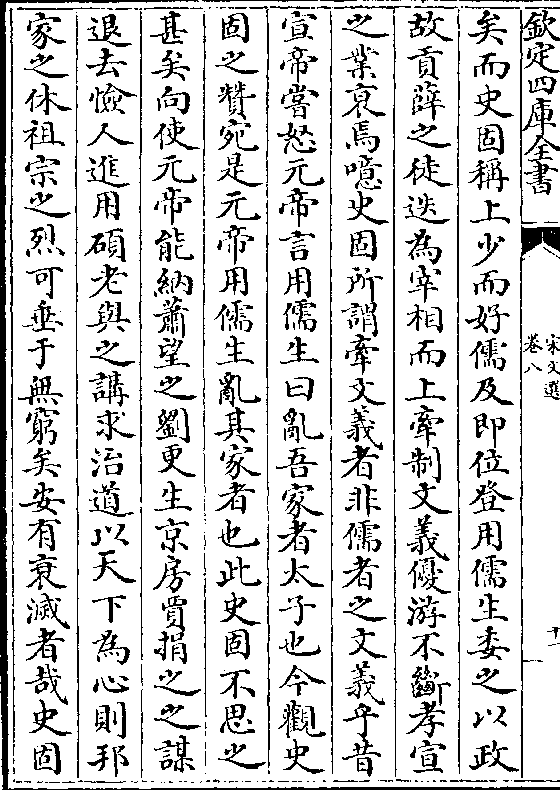 欽定四庫全書
宋文選
卷八
十一
矣而史固稱上少而好儒及即位登用儒生委之以政
故貢薛之徒迭為宰相而上牽制文義優游不斷孝宣
之業衰焉噫史固所謂牽文義者非儒者之文義乎昔
宣帝嘗怒元帝言用儒生曰亂吾家者太子也今觀史
固之贊宛是元帝用儒生亂其家者也此史固不思之
甚矣向使元帝能納蕭望之劉更生京房賈捐之之謀
退去憸人進用碩老與之講求治道以天下為心則邦
家之休祖宗之烈可垂于無窮矣安有衰滅者哉史固